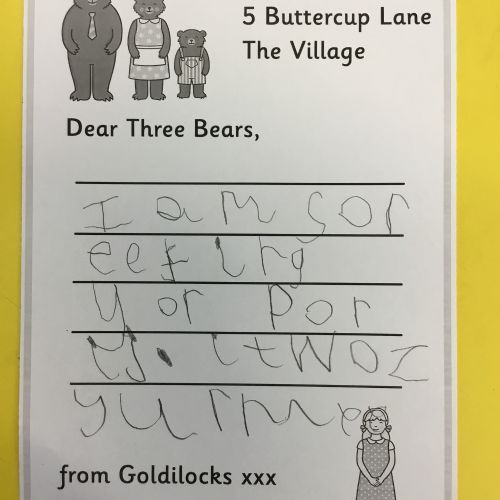 5 Buttercup Lane
The Village
Dear Three Bears,
I am sor
eef ing
yor por
it woz
yumme
from Goldilocks xxx